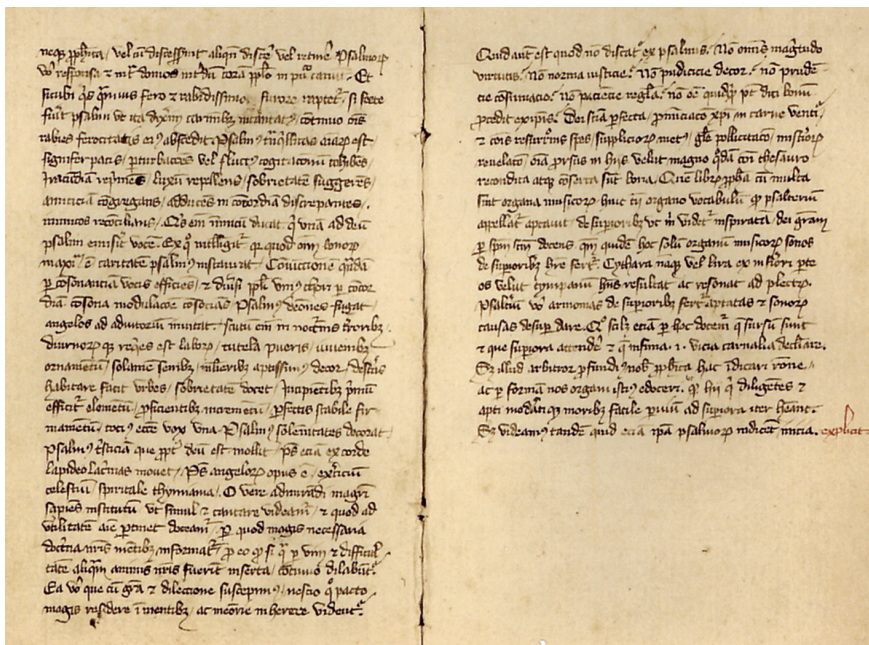 neqz ppħica, vel cū discesserint aliqn̄ discere vel retinere Psalmorꝝ
vo respōsa et int̄ domos int̄dū corā pplo in pu canūt. Et
si cuibi qs qmuis fero et rabidissimo furore raptet, si forte
fuit psalmi ut ita dixim carminibz incantatꝰ cōtinuo ois
rabies ferocitatis eiꝰ abscedit. Psalmꝰ tnqllitas aiarꝝ est
signifer pacis, pturbacōes vel fluctꝰ cogitacōnū cohibēs
Iracūdiā repmēs, luxū repellens, sobrietatē suggerēs,
amiciciā cōgregans, adducēs in cōcordiā discrepantes,
inimicos recōcilians. Qis em inimicū ducat q vnā ad deū
psalmi emisit vocē. Ex qo intelligit qr quod omī bonoꝝ
maxm ē caritatē psalmꝰ instaurat. Coniūccionē qndā
p cōsonanciā vocis efficiēs, et diuisi ppli vniꝰ chori p cōcor
diā cōsona modulacōe cōsocians Psalmꝰ demōes fugat
angelos ad adiutoriū inuitat, scutū em in nocturnis tiroribz
diurnorꝝ qz reqes est laborꝝ, tutela pueris, iuuenibz
ornamētū, solamē senibz, mlieribz aptissimꝰ decor, desertis
habitare facit vrbes, sobrietatē docet, Incipientibz pmū
efficit elemētū, pficientibz incremētū, pfectis stabile fir
mamētū, tociꝰ ecce vox vna. Psalmꝰ solemnitates decorat,
Psalmꝰ tristiciā que ppt deū est mollit, ps eciā ex corde
lapideo lacrimas mouet, Ps angelorꝝ opus ē, exercitiū
celestiū, spiritale thymiama. O vere admirādi magri
sapiēs institutū vt simul et cantare videam, et quod ad
vtilitatē aīe ptinet doceam. p quod magis necessaria
doctrina nris mētibz informat, p eo qd si q p vim et difficul
tatē aliqm animis nris fuerīt inserta, cōtinuo dilabūt.
Ea vo que cū gra et dileccione suscepimꝰ, nescio qo pacto
magis residere ī mentibz, ac meorie inherere vident.
Quid aut est quod nō discat ex psalmis. Nō omnis magitudo
virtutis. Nō norma iusticie. Nō pudicicie decor. nō prudē
cie cōsumacio. Nō paciēcie regla. nō oē quidqd pt dici bonū
pcedit ex ipsis. Dei scīa pfecta, pnūciacō xpi in carne venti
et cōis resurrōnis spes, suppliciorꝝ metꝰ, glie pollicitacō, misteriorꝝ
reuelacō, oīa prsus in hijs velut magno qdā cōi thesauro
recondita atqz cōserta sūt bona. Quē librū ppħa cū multa
sint organa musicorꝝ huic tn organo vocabulū qd psalteriū
appellat aptauit, de supioribz vt m videt inspirata, dei grām
p spm scm docens, qm quidē hoc solū organū musicorꝝ sonos
de supioribz hre fert. Cythara naqz vel lira ex inferiori pte
eos velut tympanū hns resultat ac resonat ad plectrꝝ.
Psaltiū vo armonias de supioribz fert aptatas et sonorꝝ
causas desup dare, Qo scilz eciā p hoc docem q sursū sunt
et que supiora attendere et q infima .i. vicia carnalia declinare.
Sz illud arbitror pfundiꝰ nob ppħica hac īdicari rōne,
ac p formā nos organi istiꝰ edoceri. qd hij q diligētes et
apti modlatiqz moribz facile pviū ad supiora iter heant.
Sz videamꝰ tandē quid eciā ipa psalmorꝝ indicent inicia. explicit